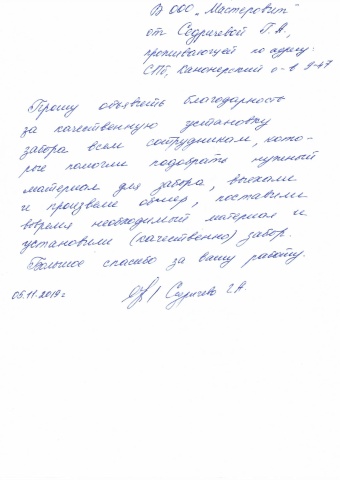 В ООО "Мастеровит"
от Седричевой Г.А,
проживающей по адресу:
СПб, Канонерский о-в 9-47
Прошу объявить благодарность
за качественную установку
забора всем сотрудникам, кото-
рые помогли подобрать нужный
материал для забора, выехали
и произвели обмер, поставили
вовремя необходимый материал и
установили (качественно) забор.
Большое спасибо за вашу работу.
05.11.2019г Седричева Г.А.